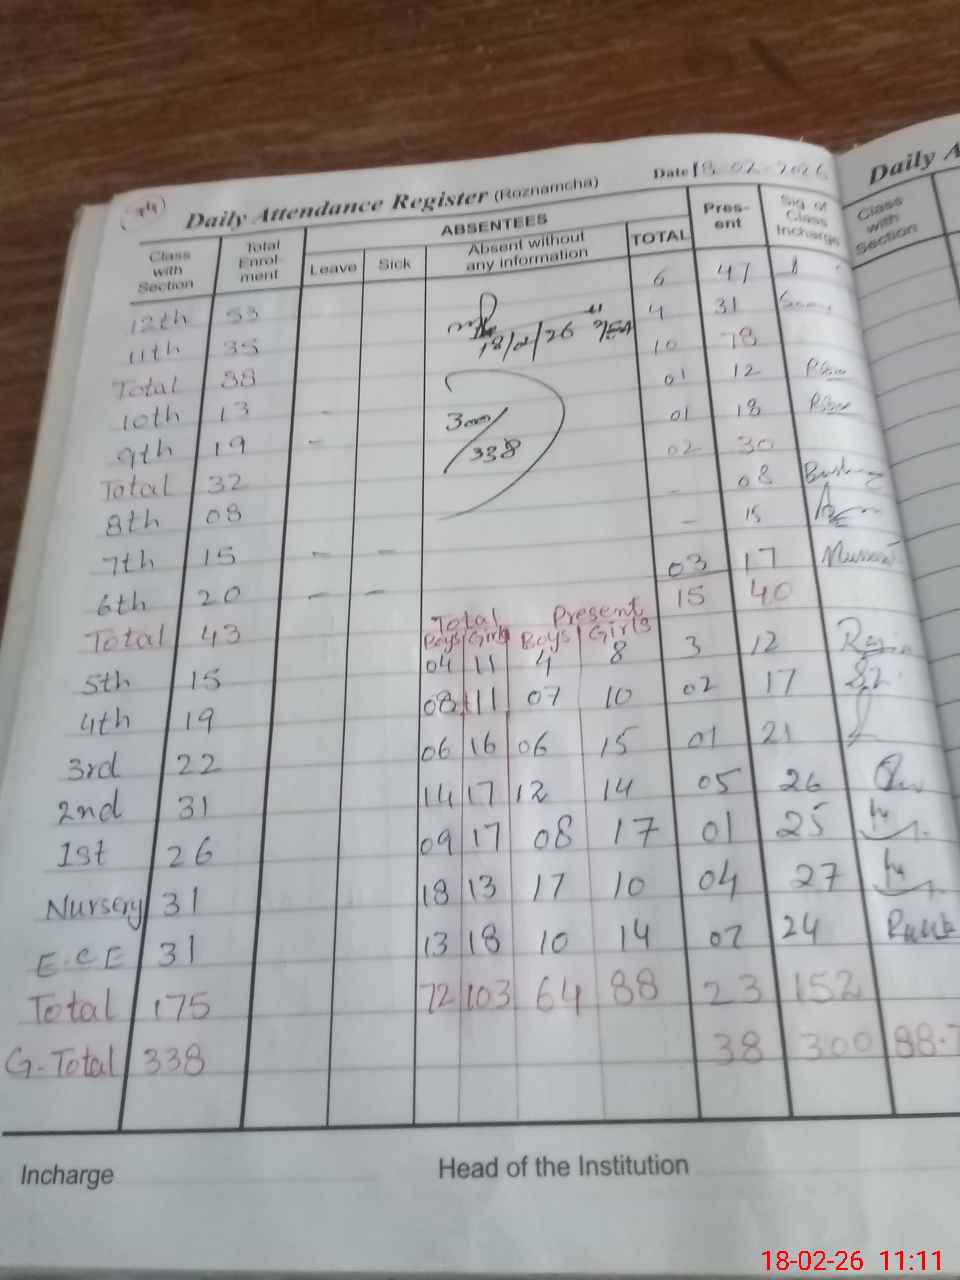 Daily Attendance Register (Roznamcha) Date 18-02-2026
Class with Section Total Enrolment ABSENTEES Present Sig of Class Incharge
Leave Sick Absent without any information TOTAL
12th 53 6 47
11th 35 4 31
18/2/26
Total 88 10 78
10th 13 - 01 12
9th 19 - 01 18
300/338
Total 32 02 30
8th 08 - 08
7th 15 - - - 15
6th 20 - - 03 17
Total 43 15 40
Total Present
Boys Girls Boys Girls
5th 15 04 11 4 8 3 12
4th 19 08 11 07 10 02 17
3rd 22 06 16 06 15 01 21
2nd 31 14 17 12 14 05 26
1st 26 09 17 08 17 01 25
Nursery 31 18 13 17 10 04 27
E.C.E 31 13 18 10 14 07 24
Total 175 72 103 64 88 23 152
G-Total 338 38 300 88.7
Incharge Head of the Institution
Daily A
Class with Section
18-02-26 11:11